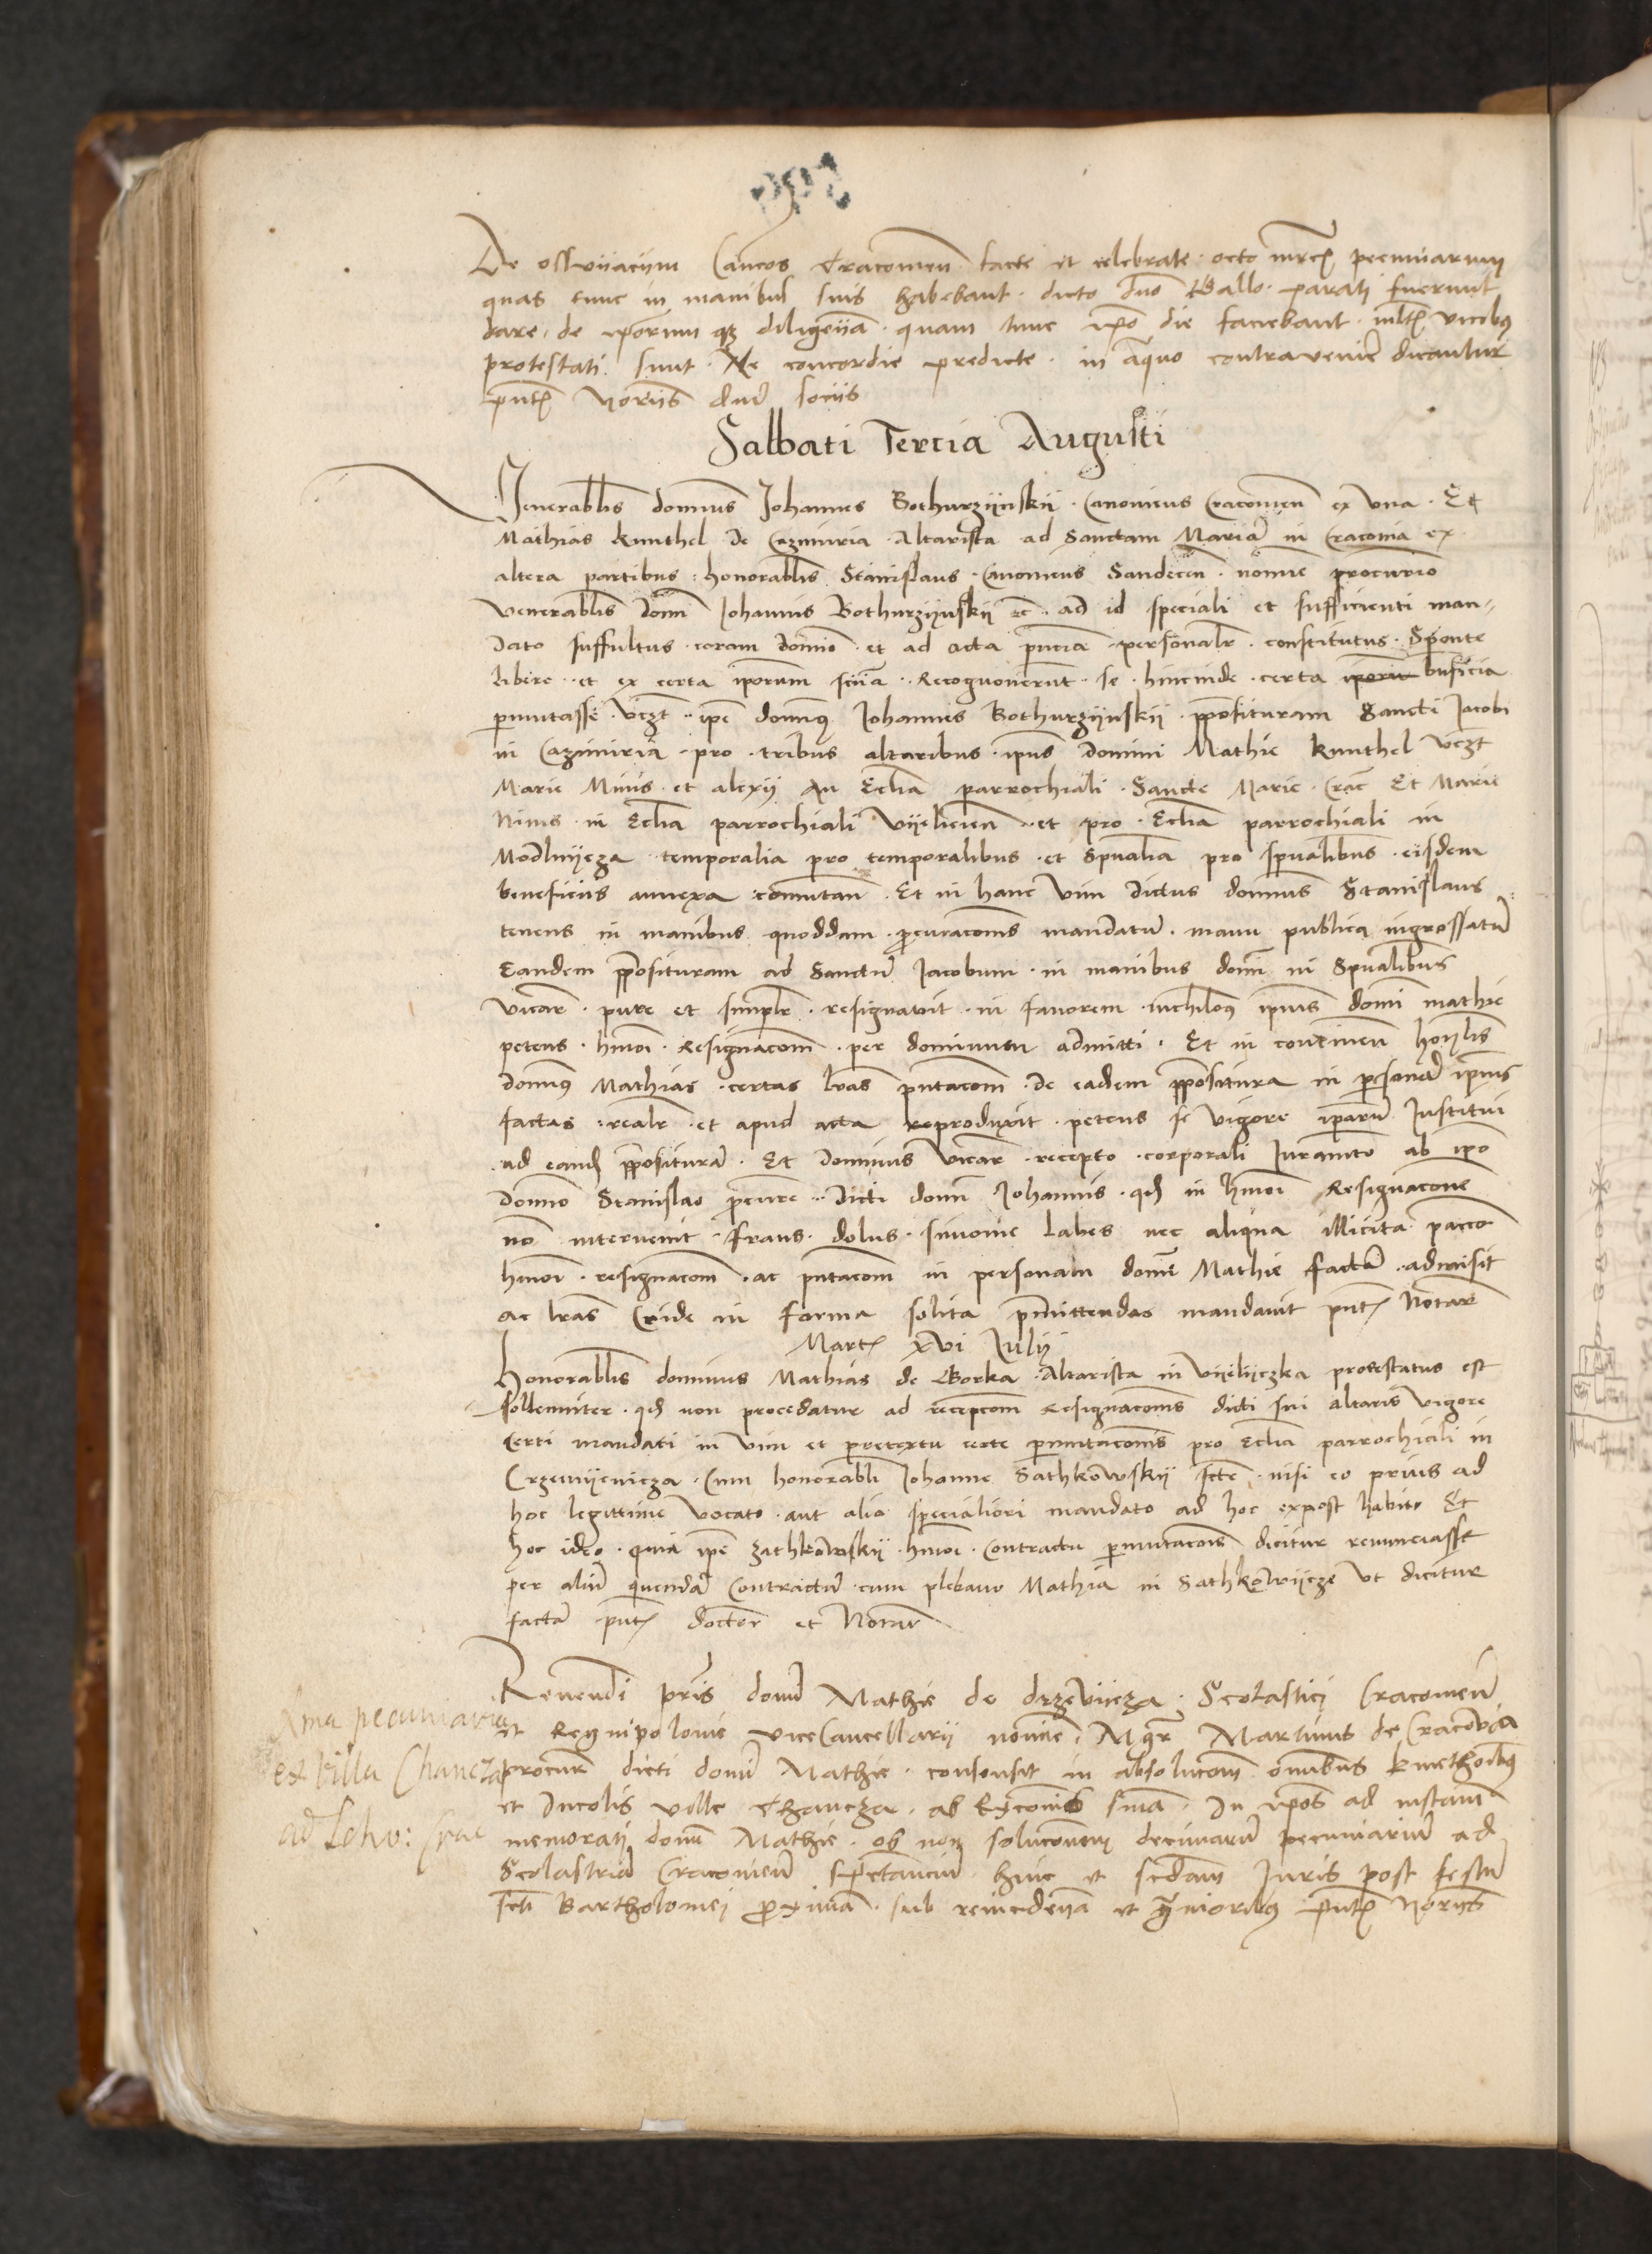 De osswiiacym Cancos Cracovien facte et celebrate octo mrcs pecuniarum
quas tunc in manibus suis habebant dicto dno Gallo parati fuerunt
dare de ipsorum diligencia quam tunc ipso die faciebant vicibus
protestati sunt Ne concordie predicte in aliquo contravenire dicantur
pntibus Noriis sociis
Sabbati Tercia Augusti
Venerabilis dominus Johannes Bothurziinskii Canonicus Cracovien ex una Et
Mathias Kunthel de Cazimiria Altarista ad Sanctam Mariam in Cracovia ex
altera partibus honorabilis Stanislaus Canonicus Sandecen nomine procurio
venerabilis domi Johannis Bothurziinskii etc ad id speciali et sufficienti man-
dato suffultus coram domino et ad acta pncia personalr constitutus Sponte
libere et ex certa iporum sciia Recognoverunt se hincinde certa iporu bnficia
permutasse vczt ipe domnus Johannes Bothurziinskii ppositturam Sancti Jacobi
in Cazimiria pro tribus altaribus ipius domini Mathie Kunthel vczt
Marie Minis et alexii in Eclia parrochiali Sancte Marie Crac Et Marie
Ninis in Eclia parrochiali viielicien et pro Eclia parrochiali in
Modlniicza temporalia pro temporalibus et Spualia pro spualibus eisdem
beneficiis annexa comutan Et in hanc vim dictus dominus Stanislaus
tenens in manibus quoddam procuracois mandatum manu publica ingrossatum
Eandem pposituram ad Sanctum Jacobum in manibus domi in Spualibus
vicar pure et simplr resignavit in favorem nichilos ipius domi mathie
petens hmoi Resignacom per dominum admitti Et in continen horylis
domnus Mathias certas lras pntacom de eadem ppositura in personam ipius
factas realr et apud acta reproduxit petens se vigore iparum Institui
ad eandem pposituram Et dominus vicar recepto corporali Juramto ab ipo
domno Stanislao procure dicti domi Johannis qd in hmoi Resignacone
no intervenit fraus dolus simonie labes nec aliqua illicita paccio
hmoi resignacom ac pntacom in personam domi Mathie factam admisit
ac lras Cride in forma solita pmittendas mandavit pntibus Notar
Martis xvi Julii
Honorabilis dominus Mathias de Gorka Altarista in viieliiczka protestatus est
sollemniter qd non procedatur ad recepcom Resignacois dicti sui altaris vigore
Certi mandati in vim et pretextu certe permutacois pro Eclia parrochiali in
Crzemiienicza Cum honorabli Johanne Sathkowskii fcte nisi eo prius ad
hoc legittime vocato aut alio specialiori mandato ad hoc expost habito Et
hoc ideo quia ipe zathkowskii hmoi Contractu permutacois dicitur renunciasse
per alium quendam Contractum cum plebano Mathia in Sathkowiicze ut dicitur
factum pntibus doctor et Notar
Reverendi pris domi Mathie de drzeviicza Scolastici Cracovien
et Regnipolonie viceCancellarii nomine Mgr Martinus de Cracovia
procur dicti domi Mathie consensit in absolucom omnibus kmethonibus
et Incolis ville Chancza ab Excois snia In ipos ad instan
memorati domi Mathie ob non solucionem decimarum pecuniarium ad
Scolastriam Cracovien spectancium hinc et secdam Juris post festum
scti Bartholomei proximam sub reincidenia et gravioribus pntibus Noriis
Xma pecuniaria
ex villa Chancza
ad Scho: Crac